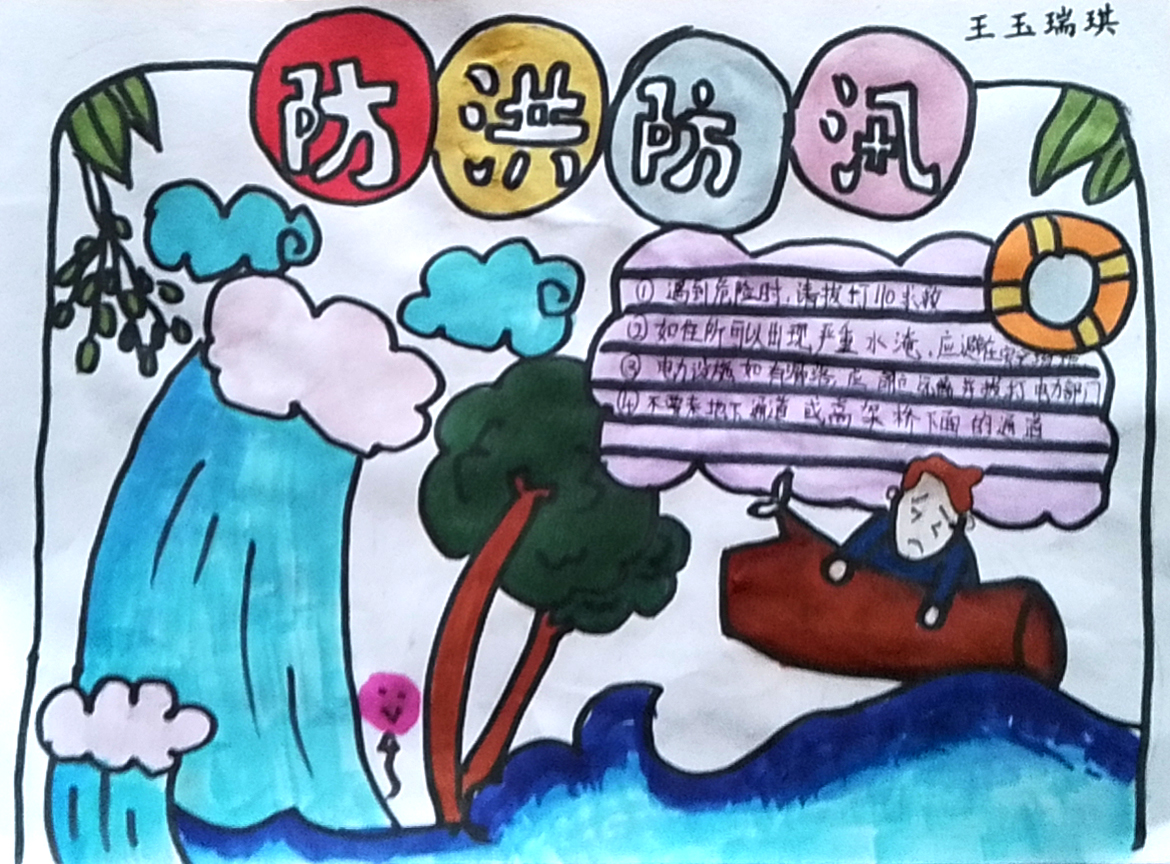 王玉瑞琪
防洪防汛
① 遇到危险时，请拨打110求救
② 如住所可以出现严重水淹，应避往安全场所
③ 电力设施如有 应 并拨打电力部门
④ 不要走地下通道或高架桥下面的通道